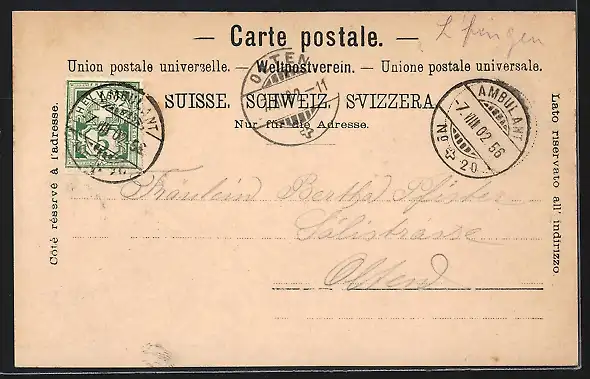 — Carte postale. —
Union postale universelle. — Weltpostverein. — Unione postale universale.
SUISSE. SCHWEIZ. SVIZZERA.
Nur für die Adresse.
Côté réservé à l'adresse.
Lato riservato all' indirizzo.
OLTEN
AMBULANT
-7.VIII 02.56
No 20
AMBULANT
-7.VIII 02.56
Fräulein Bertha Pfister
Sälistrasse
Olten